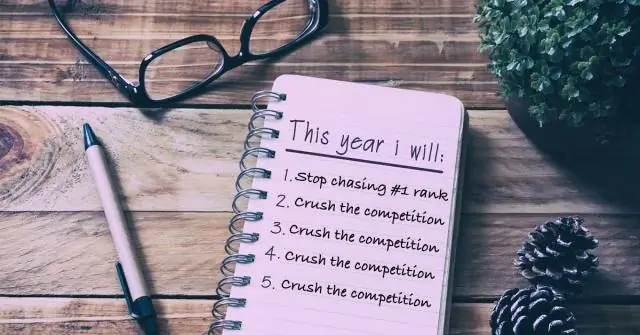 This year i will:
1. Stop chasing #1 rank
2. Crush the competition
3. Crush the competition
4. Crush the competition
5. Crush the competition